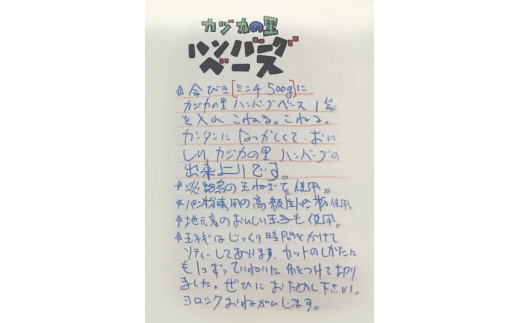 カヅカの里
ハンバーグ
ベース
☆合びき[ミンチ500g]に
カヅカの里 ハンバーグベース 1袋
を入れ こねる。こねる。
カンタンに なつかしくて おい
しい カヅカの里 ハンバーグの
出来上りです。
☆淡路島の玉ねぎを使用。
☆パン粉専用の高級国産 使用
☆地元産のおいしい玉子も使用。
☆玉ネギはじっくり時間をかけて
ソティーしてあります。カットのしかたに
も1つずつていねいに 気をつけて切り
ました。ぜひに おためし下さい。
ヨロシク おねがいします。